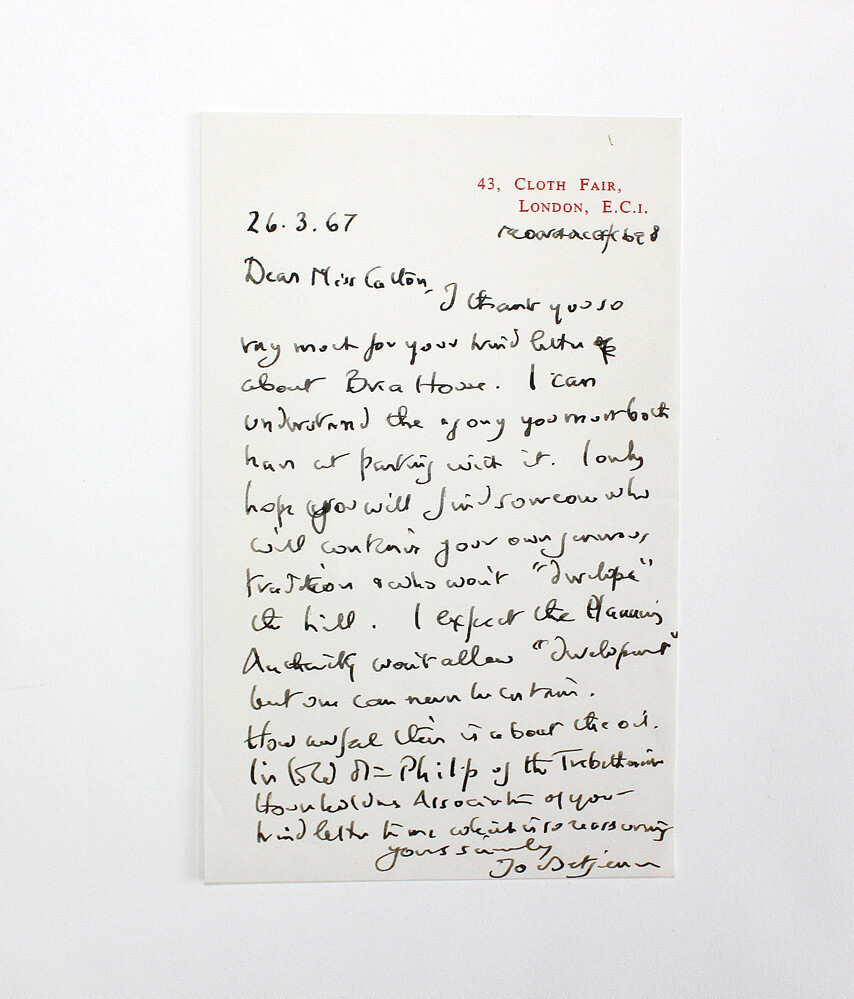 43, CLOTH FAIR,
LONDON, E.C.1.
26.3.67
Dear Miss Catton,
I thank you so
very much for your kind letter
about Brea House. I can
understand the agony you must both
have at parting with it. I only
hope you will find someone who
will continue your own generous
tradition & who won't "develope"
the hill. I expect the Planning
Authority won't allow "development"
but one can never be certain.
How awful this is about the oil.
I've told Philip of the Trebetherick
Householders Association of your
kind letter to me which is so reassuring
Yours sincerely
Jo Betjeman